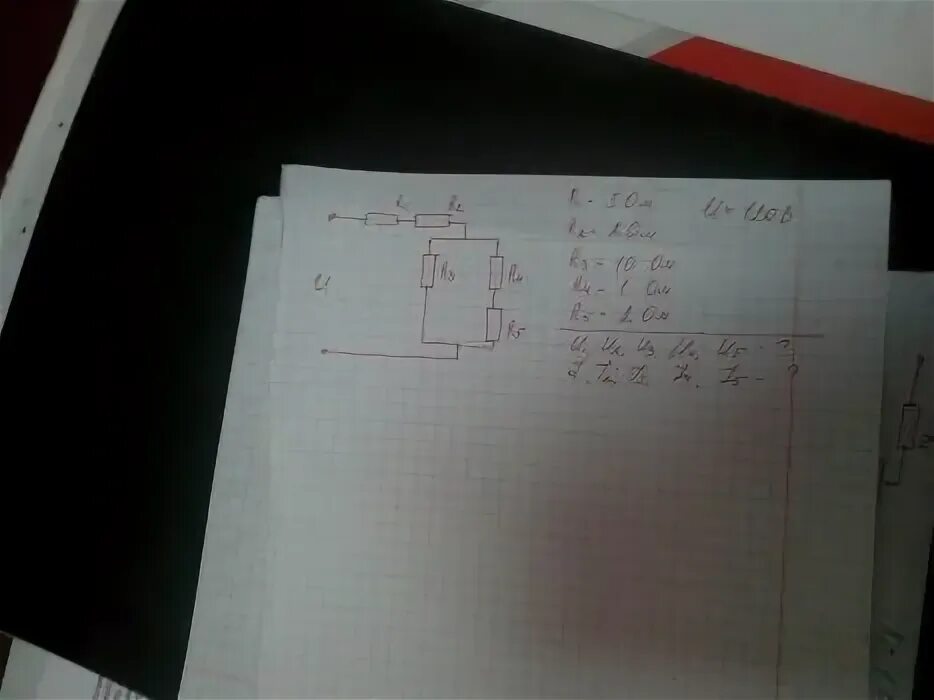 R₁ R₂
U
R₃ R₄
R₅
R - 5 Ом U = 120 В
R₂ = 2 Ом
R₃ = 10 Ом
R₄ = 1 Ом
R₅ = 2 Ом
U₁ U₂ U₃ U₄ U₅ - ?
I₁ I₂ I₃ I₄ I₅ - ?